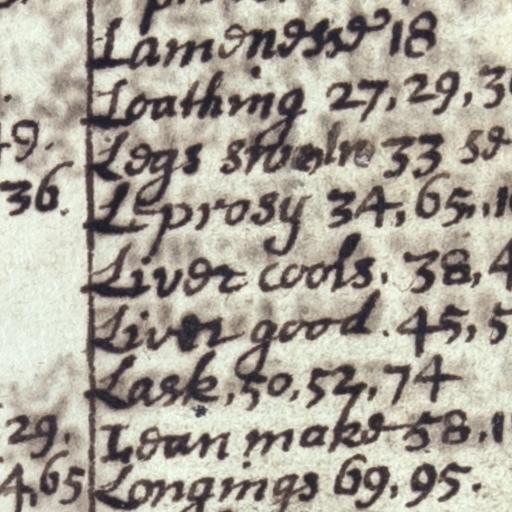 Lamenesse 18
Loathing 27, 29, 3
9. Legs swoln 33 se
36. Leprosy 34, 65, 1
Liver cools. 38, 4
Liver good. 45, 5
Lask, 50, 52, 74
29. Lean make 58, 1
4, 65 Longings 69, 95.